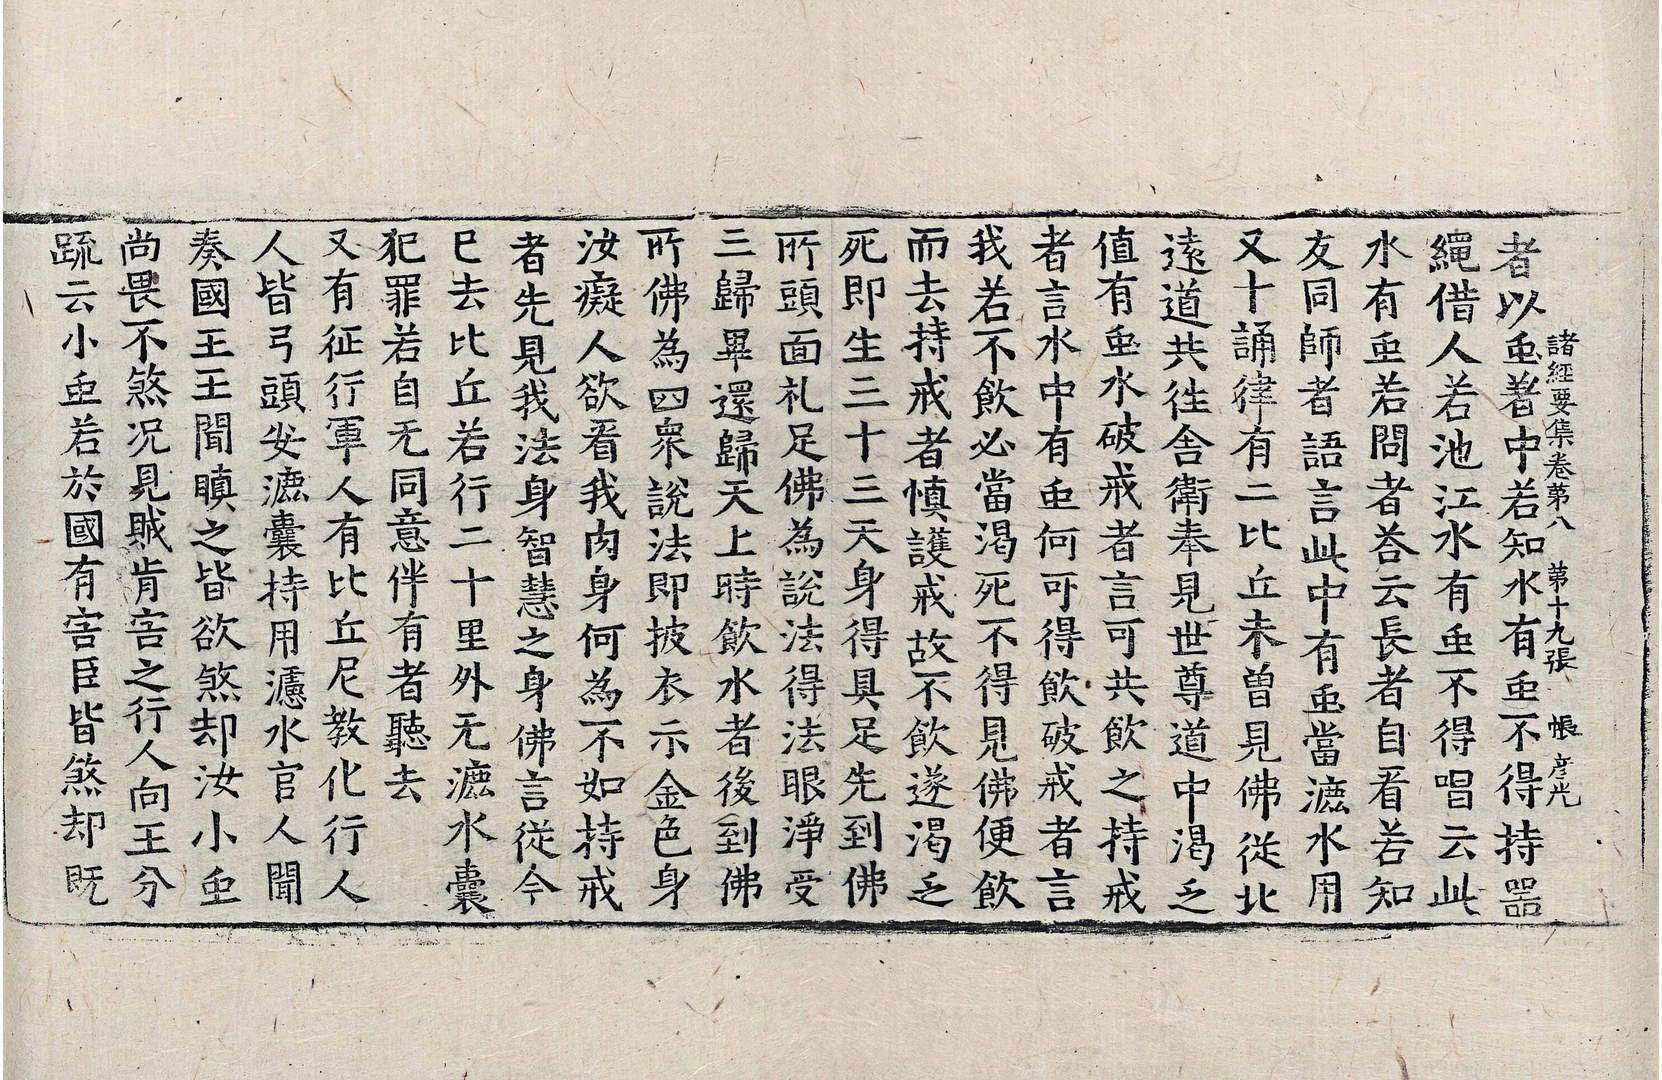 諸經要集卷第八　第十九張　帳彦光
者以䖝著中若知水有䖝不得持器
繩借人若池江水有䖝不得唱云此
水有䖝若問者荅云長者自看若知
友同師者語言此中有䖝當漉水用
又十誦律有二比丘未曽見佛從北
遠道共徃舍衛奉見世尊道中渴乏
值有䖝水破戒者言可共飲之持戒
者言水中有䖝何可得飲破戒者言
我若不飲必當渴死不得見佛便飲
而去持戒者慎護戒故不飲遂渴乏
死即生三十三天身得具足先到佛
所頭面礼足佛為說法得法眼淨受
三歸畢還歸天上時飲水者後到佛
所佛為四衆說法即披衣示金色身
汝癡人欲看我肉身何為不如持戒
者先見我法身智慧之身佛言從今
已去比丘若行二十里外无漉水囊
犯罪若自无同意伴有者聽去
又有征行軍人有比丘尼教化行人
人皆弓頭安漉囊持用濾水官人聞
奏國王王聞瞋之皆欲煞却汝小䖝
尚畏不煞况見賊肯害之行人向王分
疏云小䖝若於國有害臣皆煞却既